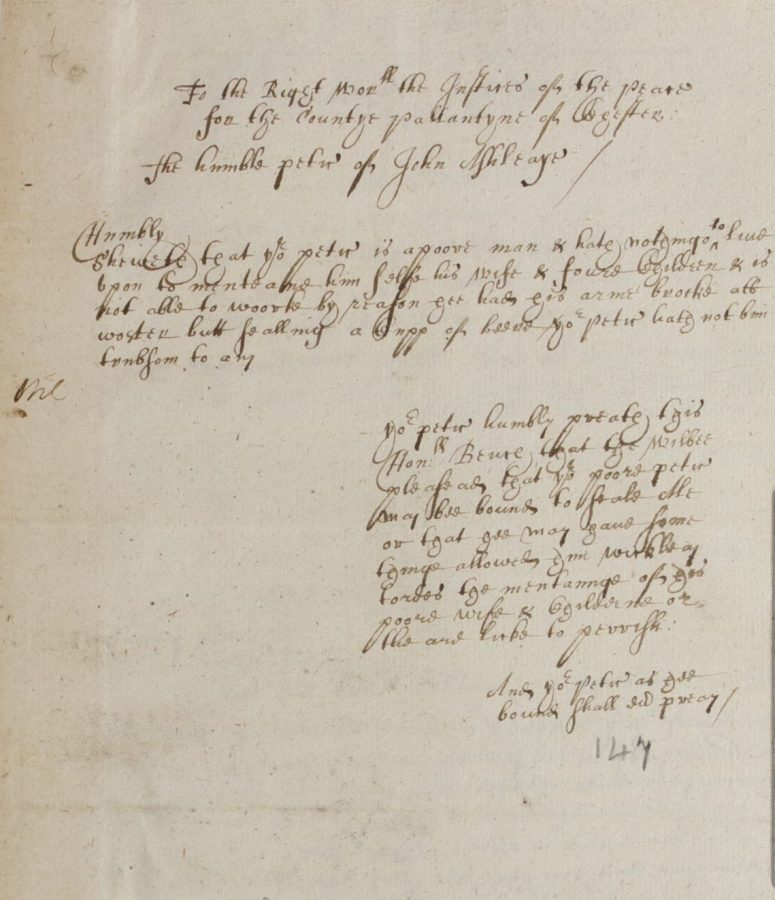 To the Right Wor:ll the Justices of the peace
for the Countye pallantyne of Chester:
The humble petic of John Ashleaye /
Humbly
Sheweth that yor petic is a poore man & hath nothinge to live
vpon to menteane him selfe his wife & foure Children & is
not able to woorke by reason hee had his arme brocke att
woster butt sealling a Cupp of beere yor petic hath not bin
trubsom to any
Nil
yor petic humbly preath this
Hon:ll Bench that the wilbee
pleasead that yor poore petic
may bee bound to seale Ale
or that hee may have some
thinge allowed him wicklèay
tordes the mentannge of his
poore wife & Children or
the are licke to perrish:
And yor petic as hee
bound shall ed preay /
147